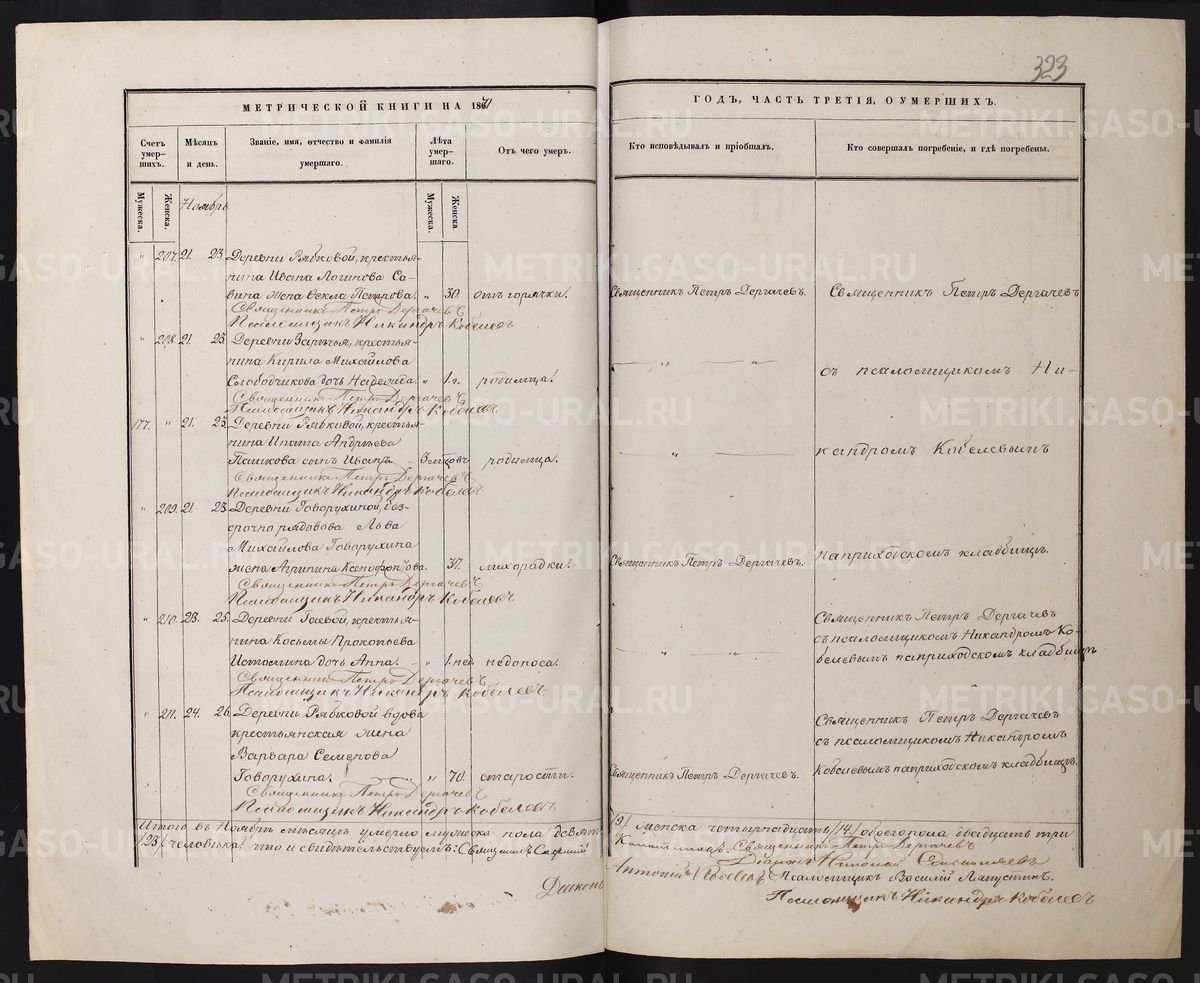 323
МЕТРИЧЕСКОЙ КНИГИ НА 18
ГОДЪ, ЧАСТЬ ТРЕТІЯ, О УМЕРШИХЪ.
Счетъ умершихъ.
Мѣсяцъ и день.
Званіе, имя, отчество и фамилія умершаго.
Лѣта умершаго.
Отъ чего умеръ.
Кто исповѣдывалъ и пріобщалъ.
Кто совершалъ погребеніе, и гдѣ погребены.
Мужеска. Женска.
Мужеска. Женска.
Ноябрь
" 207. 21. 23. Деревни Рябковой, крестья-
нина Ивана Логинова Са-
вина жена Ѳекла Петрова. " 30. отъ горячки. Священникъ Петръ Дергачевъ. Священникъ Петръ Дергачевъ
Священникъ Петръ Дергачевъ
Псаломщикъ Никандръ Кобелевъ
" 208. 21. 23. Деревни Зарѣчья, крестья-
нина Кирила Михайлова
Слободчикова дочь Надежда. " 1 г. родимца. " " съ псаломщикомъ Ни-
Священникъ Петръ Дергачевъ
Псаломщикъ Никандръ Кобелевъ
177. " 21. 23. Деревни Рябковой, крестья-
нина Ипата Андрѣева
Пашкова сынъ Иванъ. родимца. " " кандромъ Кобелевымъ
Священникъ Петръ Дергачевъ
Псаломщикъ Никандръ Кобелевъ
" 209. 21. 23. Деревни Говорухиной, без-
срочно рядовова Льва
Михайлова Говорухина
жена Агрипина Ксенофонтова. 37. лихорадки. Священникъ Петръ Дергачевъ. наприходскомъ кладбищѣ.
Священникъ Петръ Дергачевъ
Псаломщикъ Никандръ Кобелевъ
" 210. 23. 25. Деревни Гаевой, крестья-
нина Косьмы Прокопьева
Истомина дочь Анна. " 1. нед. недоноса. " "
Священникъ Петръ Дергачевъ
съ псаломщикомъ Никандромъ Ко-
белевымъ наприходскомъ кладбищѣ
Священникъ Петръ Дергачевъ
Псаломщикъ Никандръ Кобелевъ
" 211. 24. 26. Деревни Рябковой вдова
крестьянская жена
Варвара Семенова
Говорухина. " 70. старости. Священникъ Петръ Дергачевъ.
Священникъ Петръ Дергачевъ
съ псаломщикомъ Никандромъ
Кобелевымъ наприходскомъ кладбищѣ.
Священникъ Петръ Дергачевъ
Псаломщикъ Никандръ Кобелевъ
Итого въ Ноябрѣ мѣсяцѣ умерло мужеска пола девять /9/ женска четырнадцать /14/ обоего пола двадцать три
/23/ человѣка, что и свидѣтельствуемъ: Священникъ Священникъ Петръ Дергачевъ
Діаконъ Николай
Діаконъ Антоній Псаломщикъ Василій Лапустинъ.
Псаломщикъ Никандръ Кобелевъ
METRIKI.GASO-URAL.RU